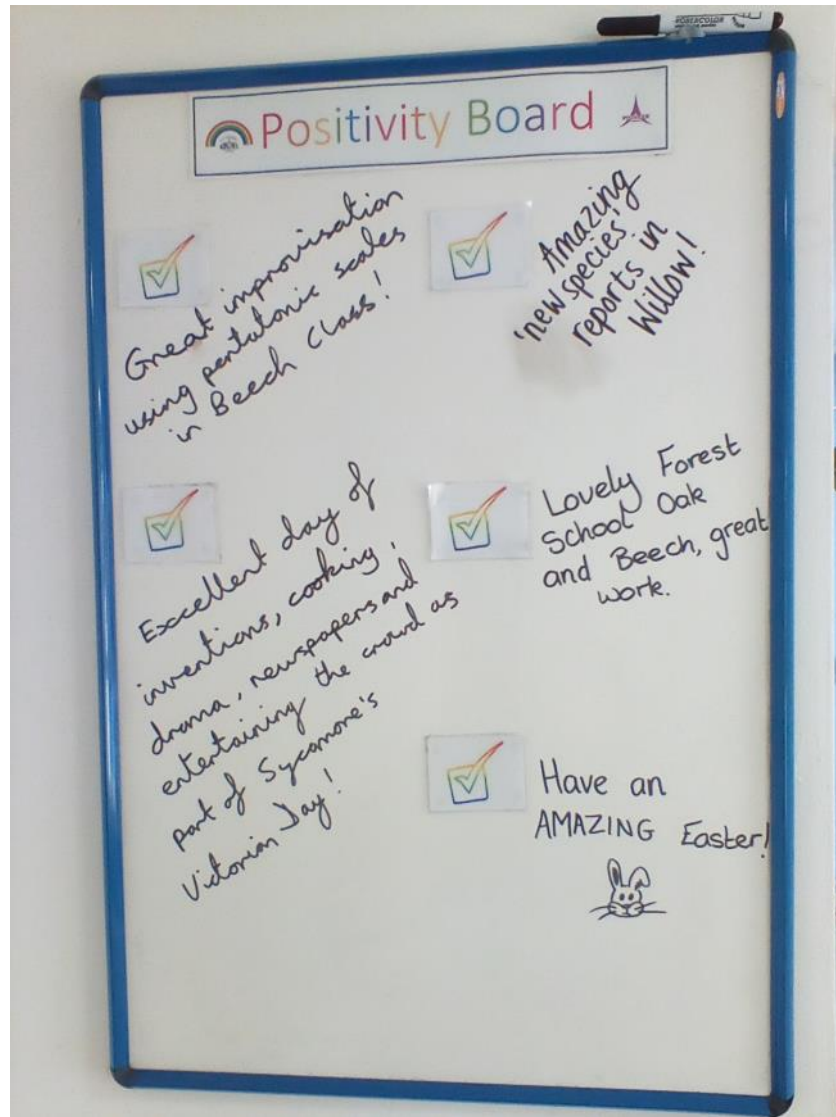 Positivity Board
Great improvisation
using pentatonic scales
in Beech Class!
Amazing
'new species'
reports in
Willow!
Excellent day of
inventions, cooking,
drama, newspapers and
entertaining the crowd as
part of Sycamore's
Victorian Day!
Lovely Forest
School Oak
and Beech, great
work.
Have an
AMAZING Easter!